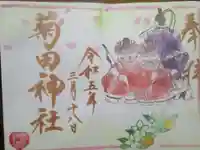 奉拝
令和五年
三月十八日
菊田神社